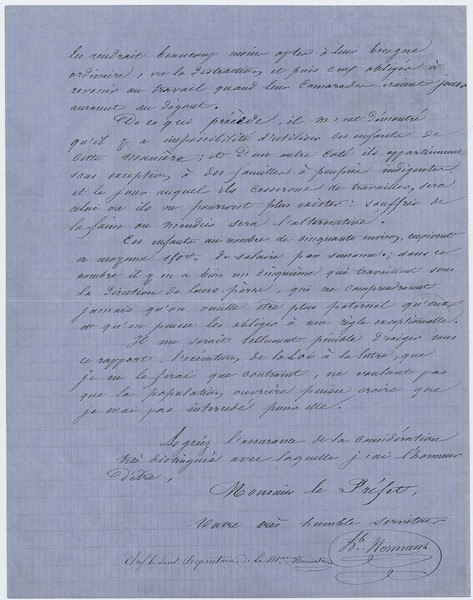 les rendrait beaucoup moins aptes à leur besogne
ordinaire, vu la distraction, et puis ceux obligés à
revenir au travail quand leurs camarades iraient jouer
auraient du dégout.
De ce qui précède, il m'est démontré
qu'il y a impossibilité d'utiliser ces enfants de
cette manière; et d'un autre coté ils appartiennent
sans exception, à des familles à peu près indigentes
et le jour auquel ils cesseront de travailler, sera
celui où ils ne pourront plus exister: souffrir de
la faim ou mendier sera l'alternative.
Ces enfants au nombre de cinquante environ,
en moyenne de salaire par semaine; dans ce
nombre il y en a bien un cinquième qui travaillent sous
la direction de leurs pères, qui ne comprendraient
jamais qu'on veuille être plus paternel qu'eux
et qu'on puisse les obliger à une règle exceptionnelle.
Il me serait tellement pénible d'exiger sous
ce rapport, l'exécution de la Loi à la lettre, que
je ne le ferai que contraint, ne voulant pas
que la population ouvrière puisse croire que
je n'ai pas intercédé pour elle.
Agréez l'assurance de la considération
très distinguée avec laquelle j'ai l'honneur
d'être,
Monsieur le Préfet,
Votre très humble serviteur
Normand
Propriétaire de la